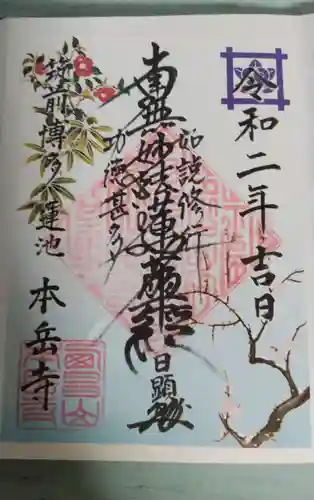 令和二年吉日
如説修行
南無妙法蓮華経
功徳甚多
日顕
筑前博多蓮池
本岳寺